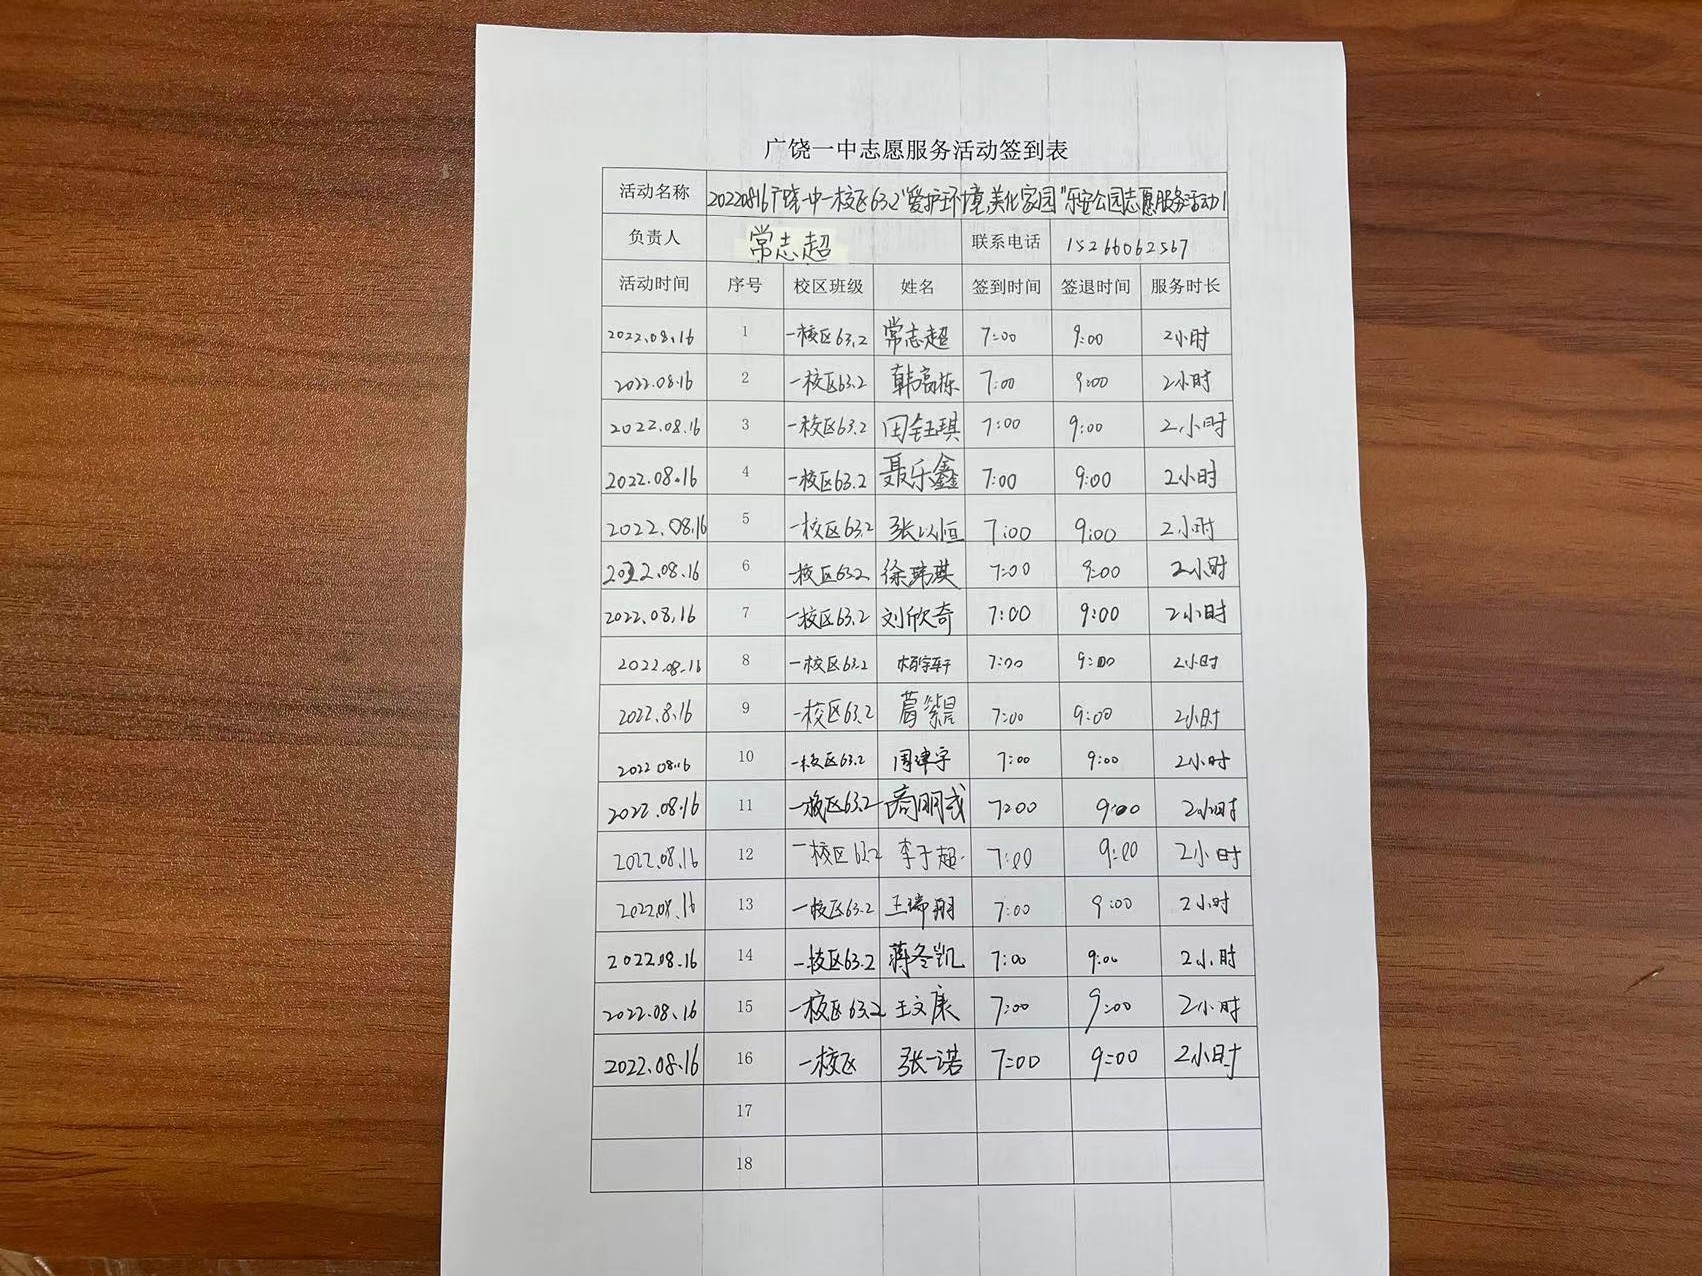 广饶一中志愿服务活动签到表
活动名称 20220816广饶一中一校区63.2"爱护环境,美化家园"乐安公园志愿服务活动1
负责人 常志超 联系电话 15266062567
活动时间 序号 校区班级 姓名 签到时间 签退时间 服务时长
2022.08.16 1 一校区63.2 常志超 7:00 9:00 2小时
2022.08.16 2 一校区63.2 韩高栋 7:00 9:00 2小时
2022.08.16 3 一校区63.2 田钰琪 7:00 9:00 2小时
2022.08.16 4 一校区63.2 聂乐鑫 7:00 9:00 2小时
2022.08.16 5 一校区63.2 张以恒 7:00 9:00 2小时
2022.08.16 6 一校区63.2 徐玮琪 7:00 9:00 2小时
2022.08.16 7 一校区63.2 刘欣奇 7:00 9:00 2小时
2022.08.16 8 一校区63.2 7:00 9:00 2小时
2022.8.16 9 一校区63.2 7:00 9:00 2小时
2022 08.16 10 一校区63.2 周津宇 7:00 9:00 2小时
2022.08.16 11 一校区63.2 7:00 9:00 2小时
2022.08.16 12 一校区63.2 李于超 7:00 9:00 2小时
2022.08.16 13 一校区63.2 王瑞翔 7:00 9:00 2小时
2022.08.16 14 一校区63.2 蒋冬凯 7:00 9:00 2小时
2022.08.16 15 一校区63.2 王文康 7:00 9:00 2小时
2022.08.16 16 一校区 张一诺 7:00 9:00 2小时
17
18